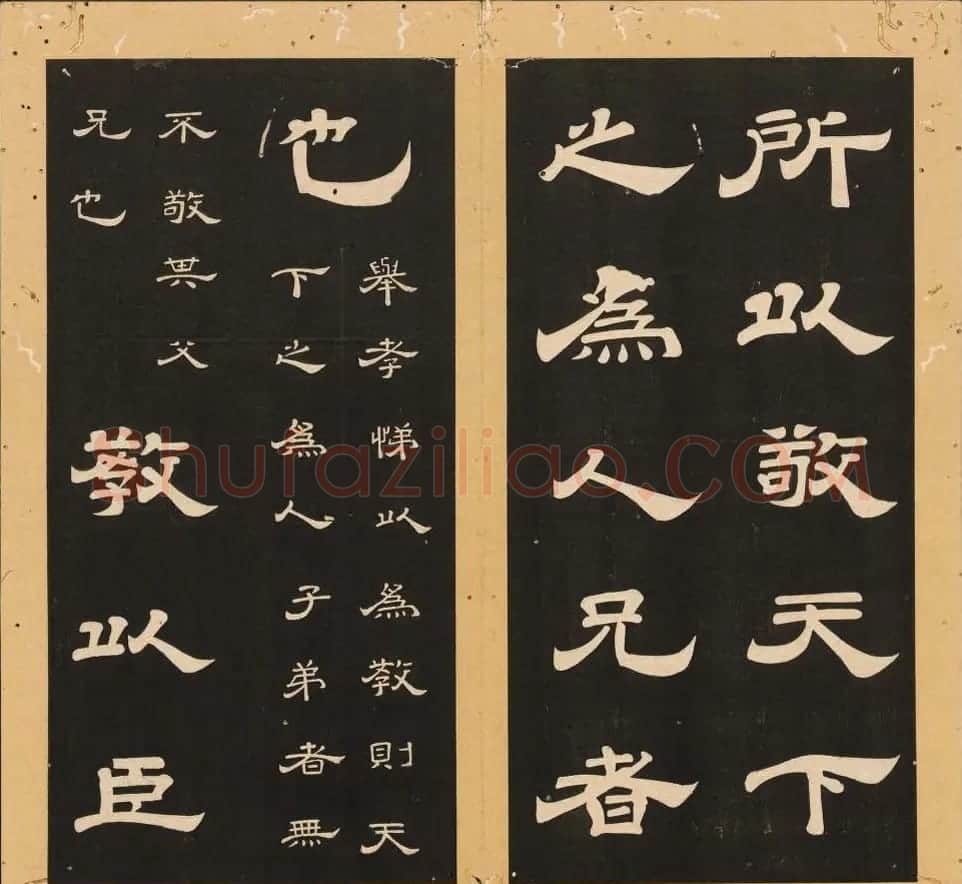 所以敬天下
之為人兄者
也
舉孝悌以為教則天
下之為人子弟者無
不敬其父
兄也
教以臣
shufaziliao.COM